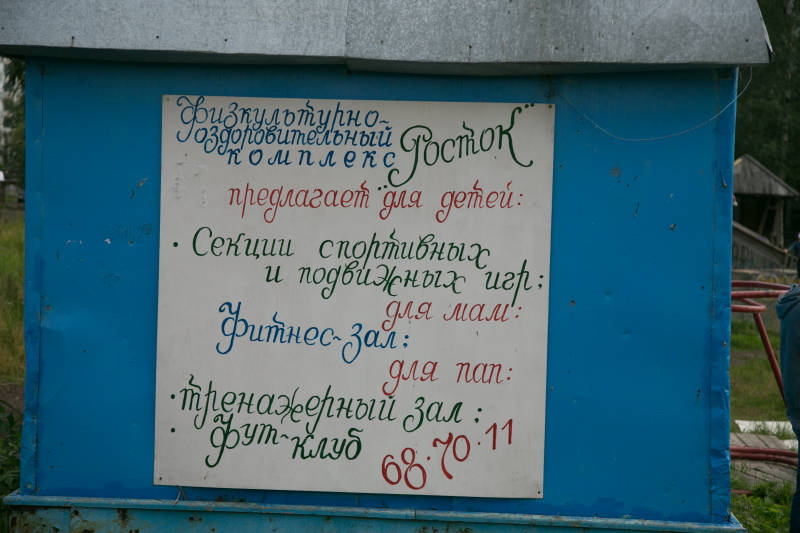 Физкультурно-
оздоровительный
комплекс "Росток"
предлагает для детей:
· Секции спортивных
и подвижных игр;
для мам:
Фитнес-зал;
для пап:
· тренажерный зал;
· Фут-клуб
68·70·11